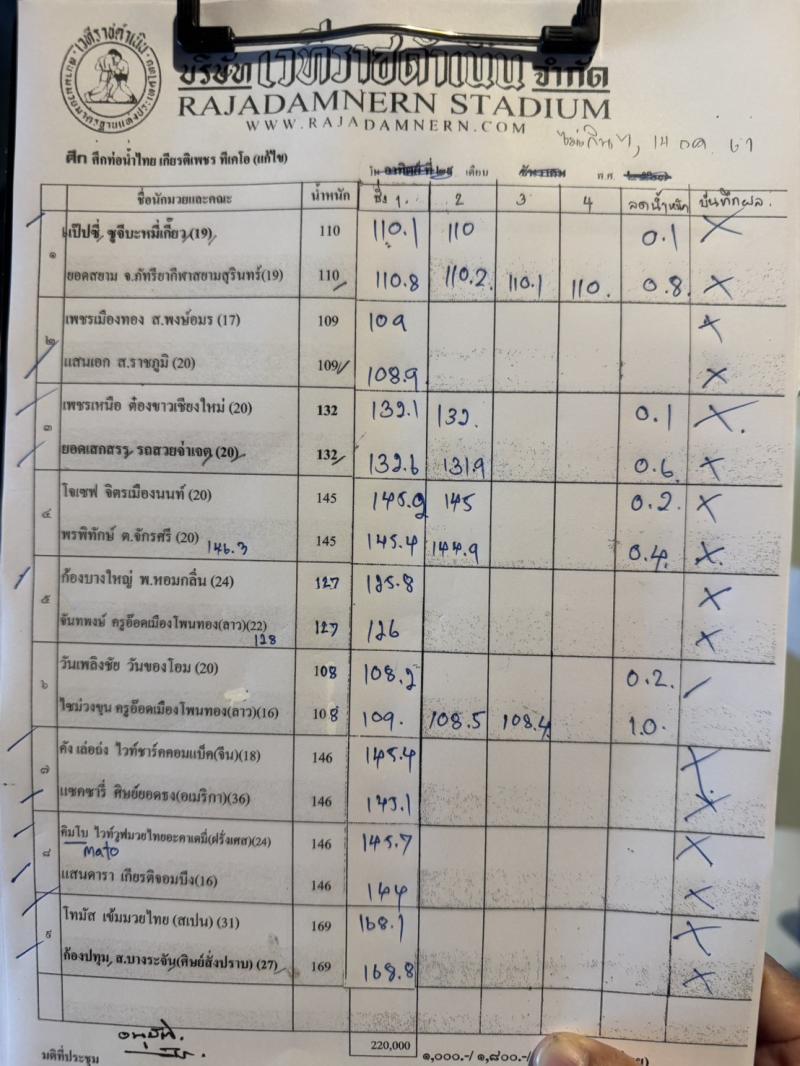 เวทีราชดำเนิน
บริษัท เวทีราชดำเนิน จำกัด
RAJADAMNERN STADIUM
WWW.RAJADAMNERN.COM
14 ตค. 67
ศึก ศึกท่อน้ำไทย เกียรติเพชร ทีเคโอ (แก้ไข)
วัน อาทิตย์ ที่ เดือน พ.ศ.
ชื่อนักมวยและคณะ น้ำหนัก ชั่ง 1. 2 3 4 ลดน้ำหนัก บันทึกผล
๑ เป๊ปซี่ ซูจีบะหมี่เกี๊ยว (19) 110 110.1 110 0.1 X
ยอดสยาม จ.ภัทรียากีฬาสยามสุรินทร์(19) 110 110.8 110.2 110.1 110. 0.8 X
๒ เพชรเมืองทอง ส.พงษ์อมร (17) 109 109 X
แสนเอก ส.ราชภูมิ (20) 109 108.9 X
๓ เพชรเหนือ ต๋องขาวเชียงใหม่ (20) 132 132.1 132. 0.1 X
ยอดเสกสรร รถสวยจ่าเจต (20) 132 132.6 131.9 0.6 X
๔ โจเซฟ จิตรเมืองนนท์ (20) 145 145.2 145 0.2 X
พรพิทักษ์ ต.จักรศรี (20) 146.3 145 145.4 144.9 0.4 X
๕ ก้องบางใหญ่ พ.หอมกลิ่น (24) 127 125.8 X
จันทพงษ์ ครูอ๊อดเมืองโพนทอง(ลาว)(22) 128 127 126 X
๖ วันเพลิงชัย วันของโอม (20) 108 108.2 0.2
ไซม่วงขุน ครูอ๊อดเมืองโพนทอง(ลาว)(16) 108 109. 108.5 108.4 1.0
๗ คัง เล่อถ่ง ไวท์ชาร์คคอมแบ็ค(จีน)(18) 146 145.4 X
แซคซารี่ ศิษย์ยอดธง(อเมริกา)(36) 146 143.1 X
๘ คิมโบ ไวท์วูฟมวยไทยอะคาเดมี่(ฝรั่งเศส)(24) 146 145.7 X
mato
แสนดารา เกียรติจอมบึง(16) 146 144 X
๙ โทมัส เข้มมวยไทย (สเปน) (31) 169 168.1 X
ก้องปทุม ส.บางระจัน(ศิษย์สั่งปราบ) (27) 169 168.8 X
มติที่ประชุม 220,000 ๑,๐๐๐.-/ ๑,๘๐๐.-/